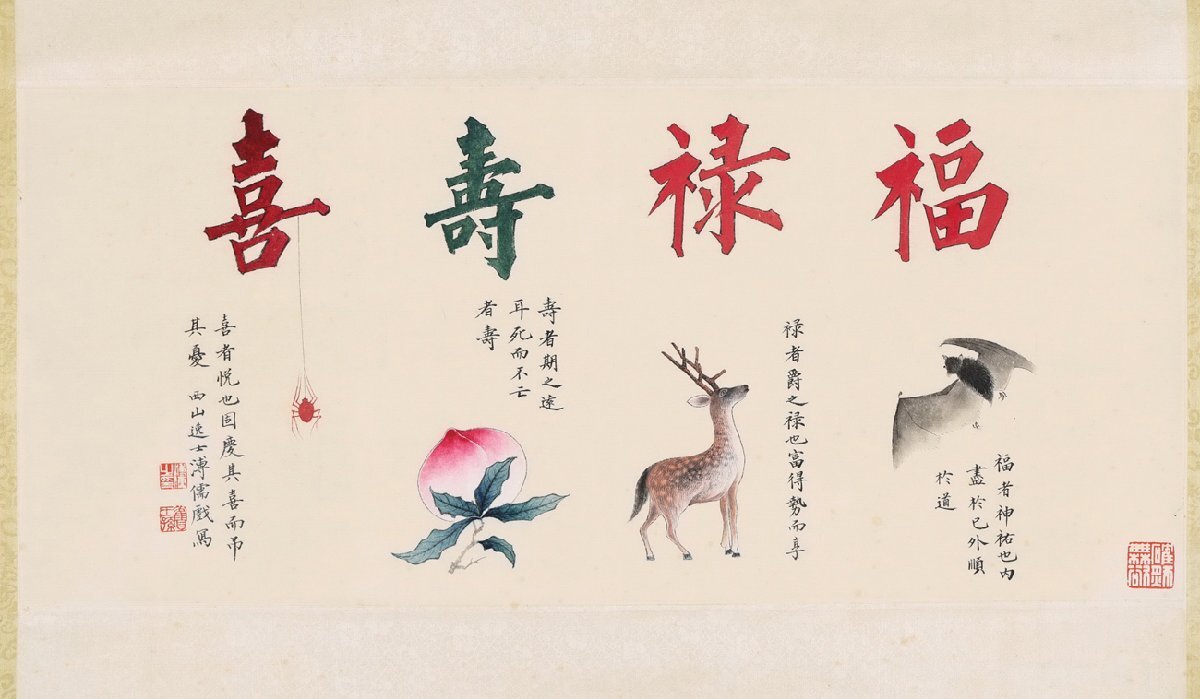 福
福者神祐也内
盡於己外順
於道
禄
禄者爵之禄也富得勢而享
壽
壽者期之遠
耳死而不亡
者壽
喜
喜者悅也因慶其喜而吊
其憂 西山逸士溥儒戲寫
舊王孫